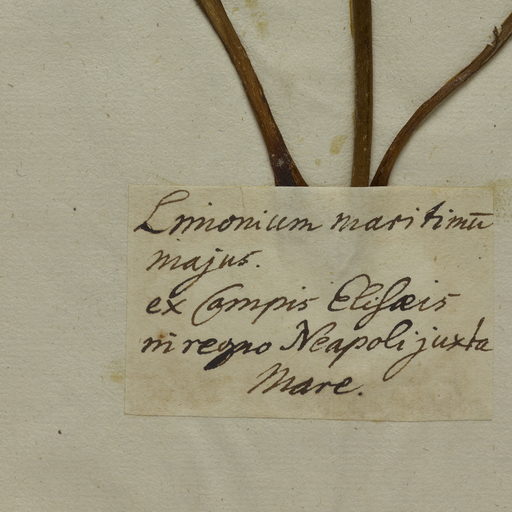 Limonium maritimū
majus.
ex Campis Elisæis
in regno Neapoli juxta
Mare.